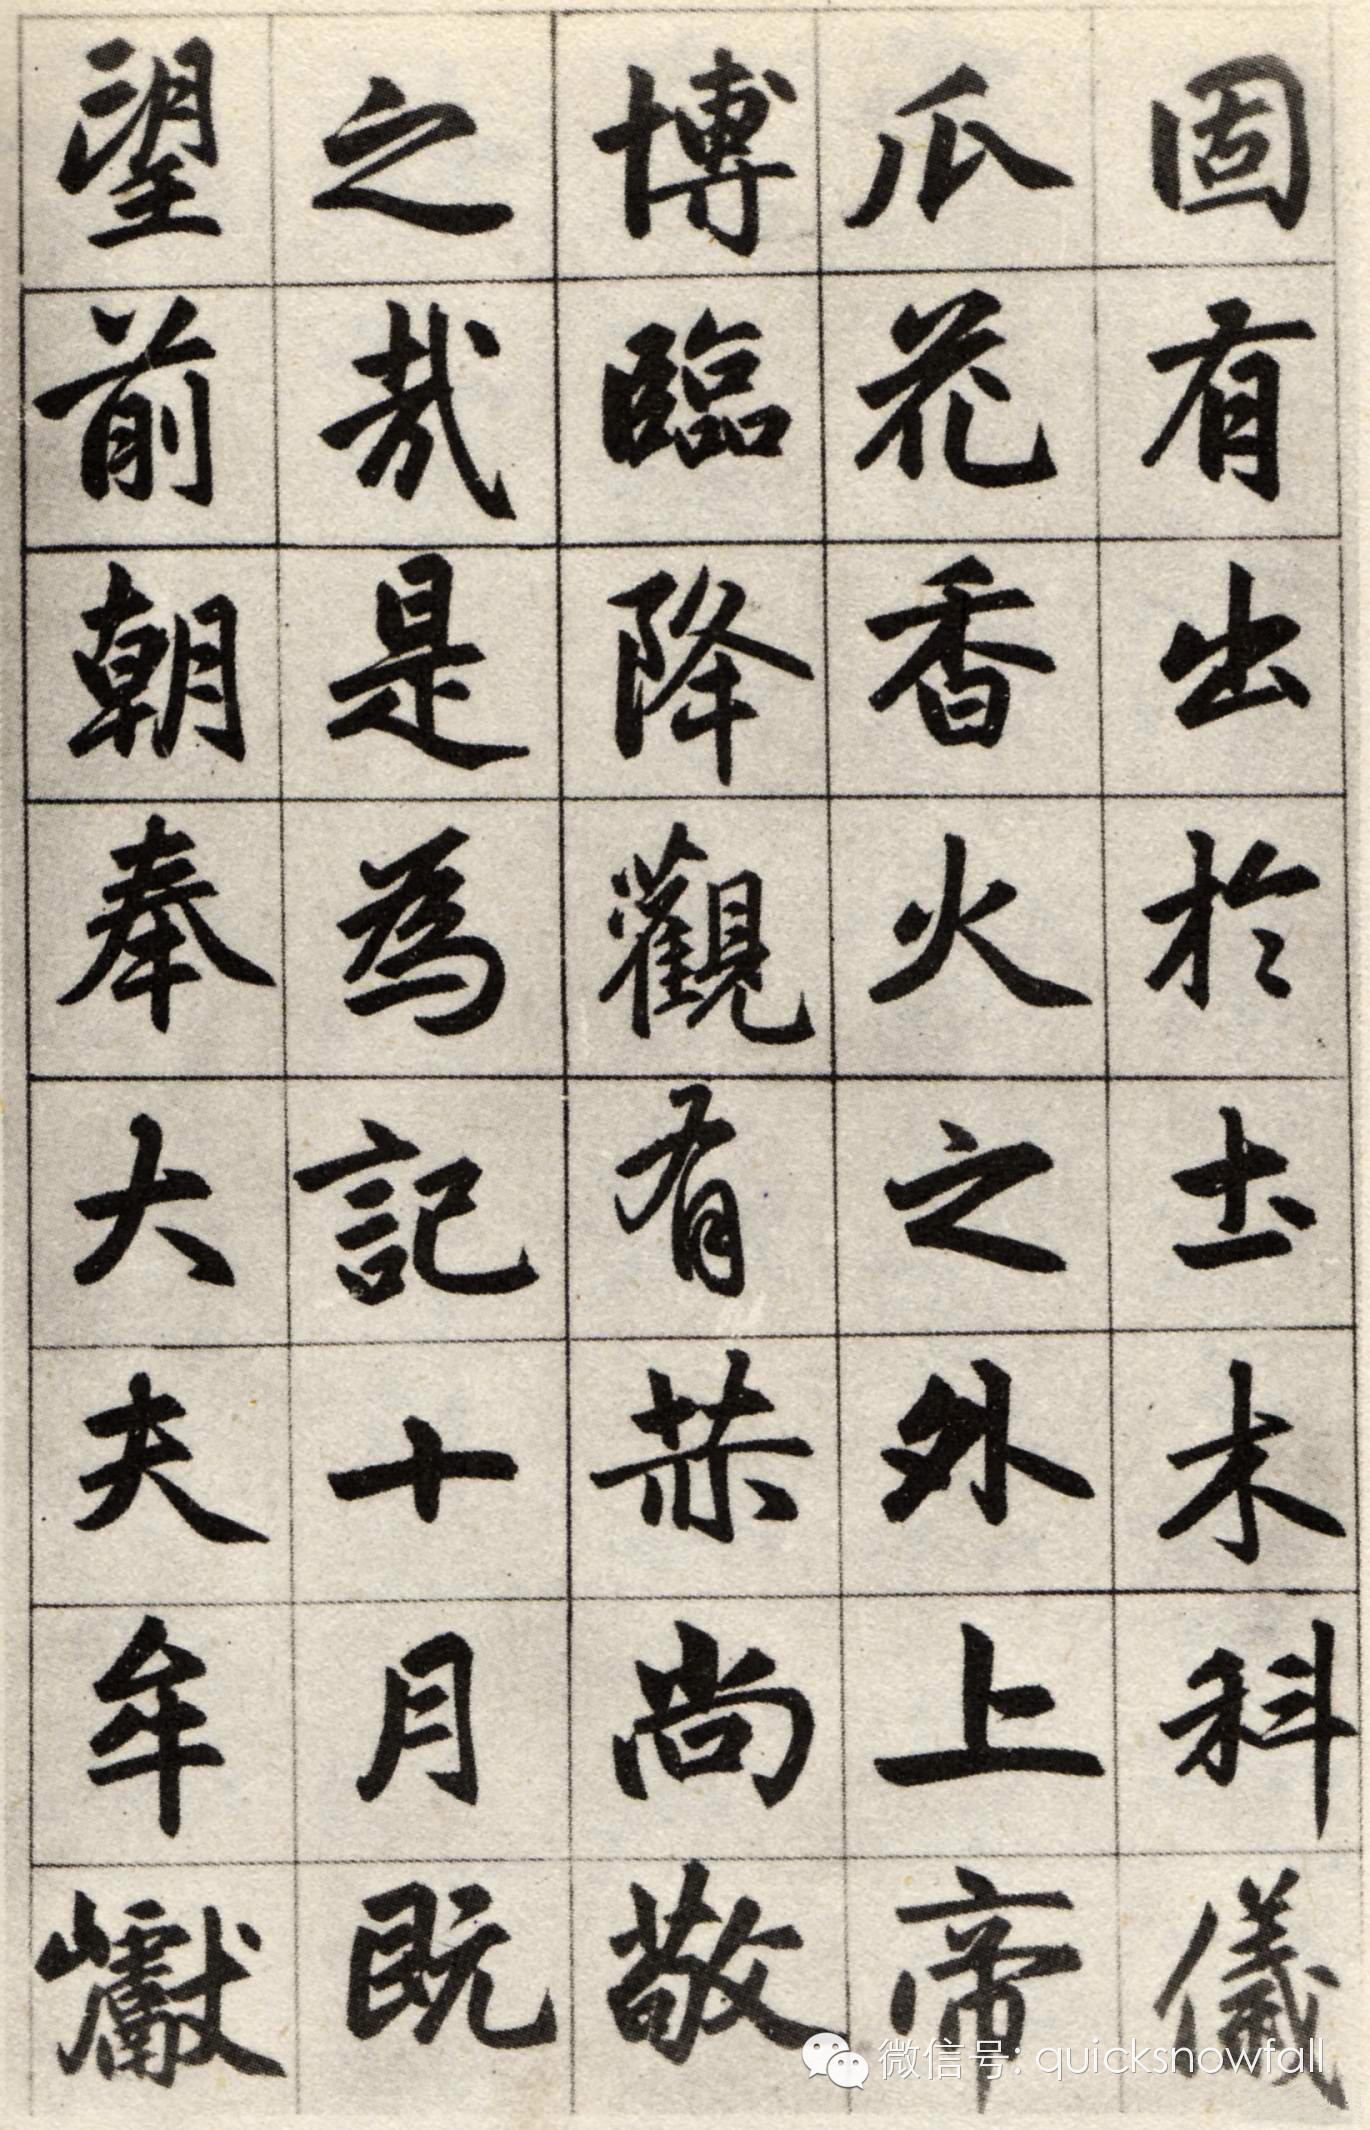 固有出於土木科儀
瓜花香火之外上帝
博臨降觀有恭尚敬
之哉是為記十月既
望前朝奉大夫牟巘
微信号: quicksnowfall